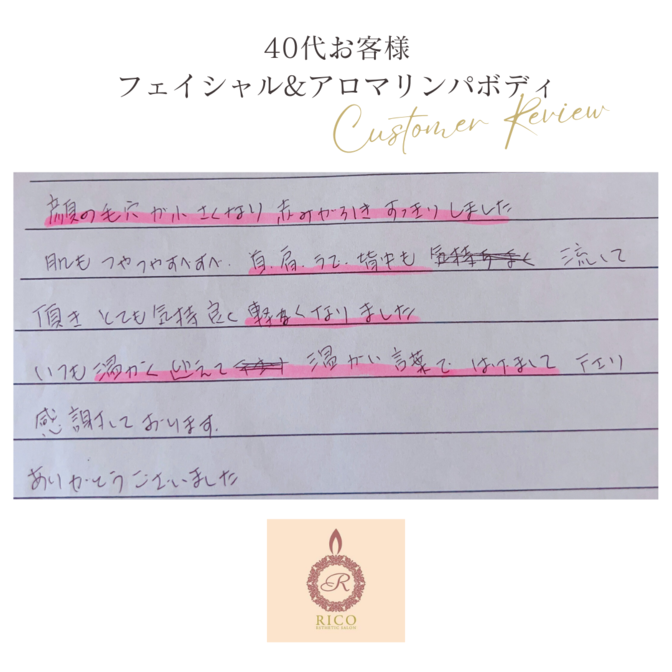 40代お客様
フェイシャル&アロマリンパボディ
Customer Review
顔の毛穴が小さくなり赤みが引きすっきりしました
肌もつやつやすべすべ、首、肩、うで、背中も 流して
頂きとても気持良く軽くなりました
いつも温かく迎えて 温かい言葉で はげまして下さり
感謝しております。
ありがとうございました
R
RICO